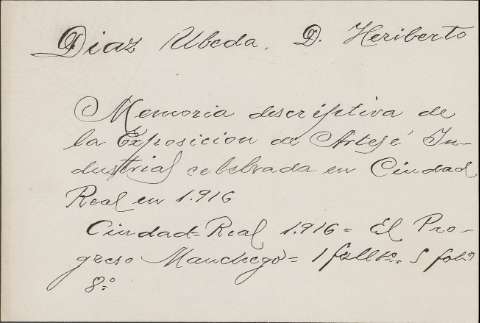 Diaz Ubeda. D. Heriberto
Memoria descriptiva de
la Exposicion de Arte é In-
dustrial celebrada en Ciudad
Real en 1.916
Ciudad-Real 1.916 = El Pro-
greso Manchego = 1 follto. 5 fols
8.º